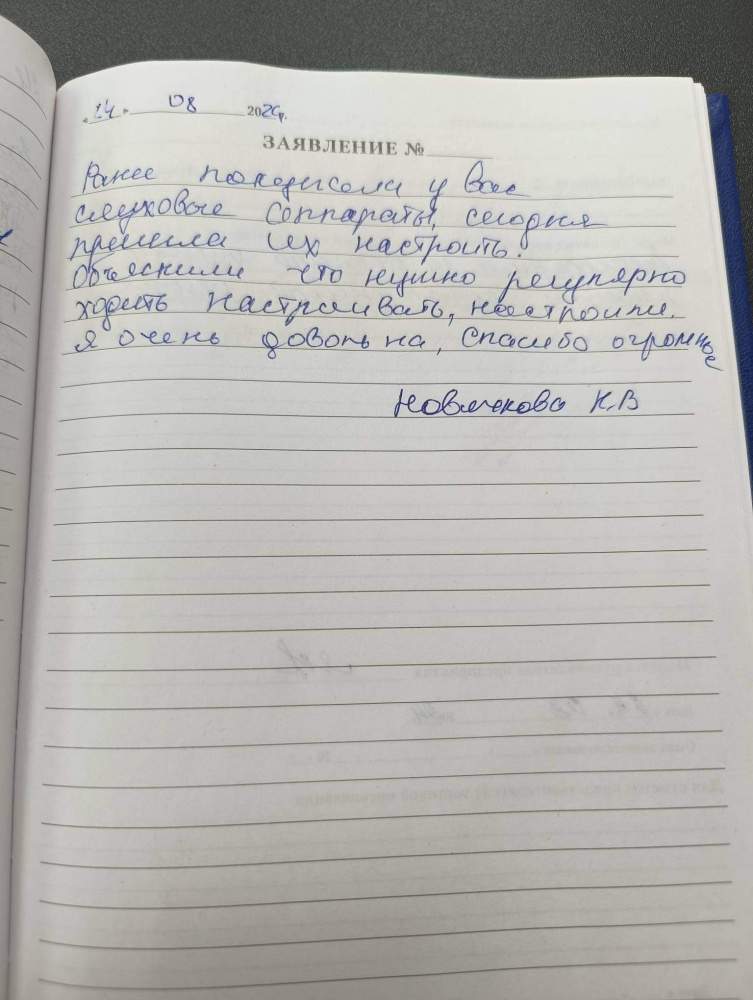 „14" 08 2024г.
ЗАЯВЛЕНИЕ №
Ранее покупала у вас
слуховые аппараты, сегодня
пришла их настроить.
Объяснили что нужно регулярно
ходить настраивать, настроили.
я очень довольна, спасибо огромное
К.В